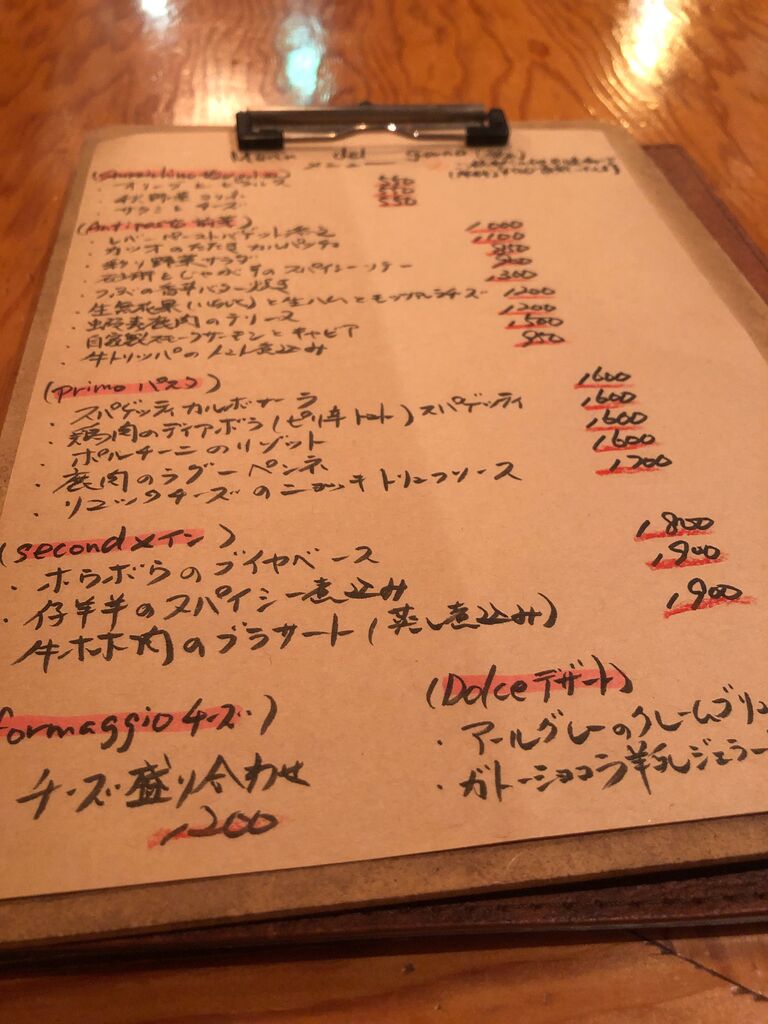 Menu del giorno
メニュー
550
サラミとチーズ
550
(Antipasto 前菜)
1,000
レバーペーストバゲット添え
1,100
カツオのたたきカルパッチョ
850
彩り野菜サラダ
砂肝とじゃがいものスパイシーソテー
香草バター焼き
1,200
生無花果(いちじく)と生ハムとモッツァレラチーズ
1,200
蝦夷鹿肉のテリーヌ
1,500
自家製スモークサーモンとキャビア
950
牛トリッパのトマト煮込み
(primo パスタ)
スパゲッティカルボナーラ 1,600
・鶏肉のディアボラ(ピリ辛トマト)スパゲッティ 1,600
・ポルチーニのリゾット 1,600
・鹿肉のラグーペンネ 1,600
・リコッタチーズのニョッキトリュフソース 1,700
(second メイン)
・ホウボウのブイヤベース 1,800
・仔羊のスパイシー煮込み 1,900
牛ホホ肉のブラサート(蒸し煮込み) 1,900
formaggio チーズ)
チーズ盛り合わせ
1,200
(Dolce デザート)
・アールグレーのクレームブリュ
・ガトーショコラ羊乳ジェラー